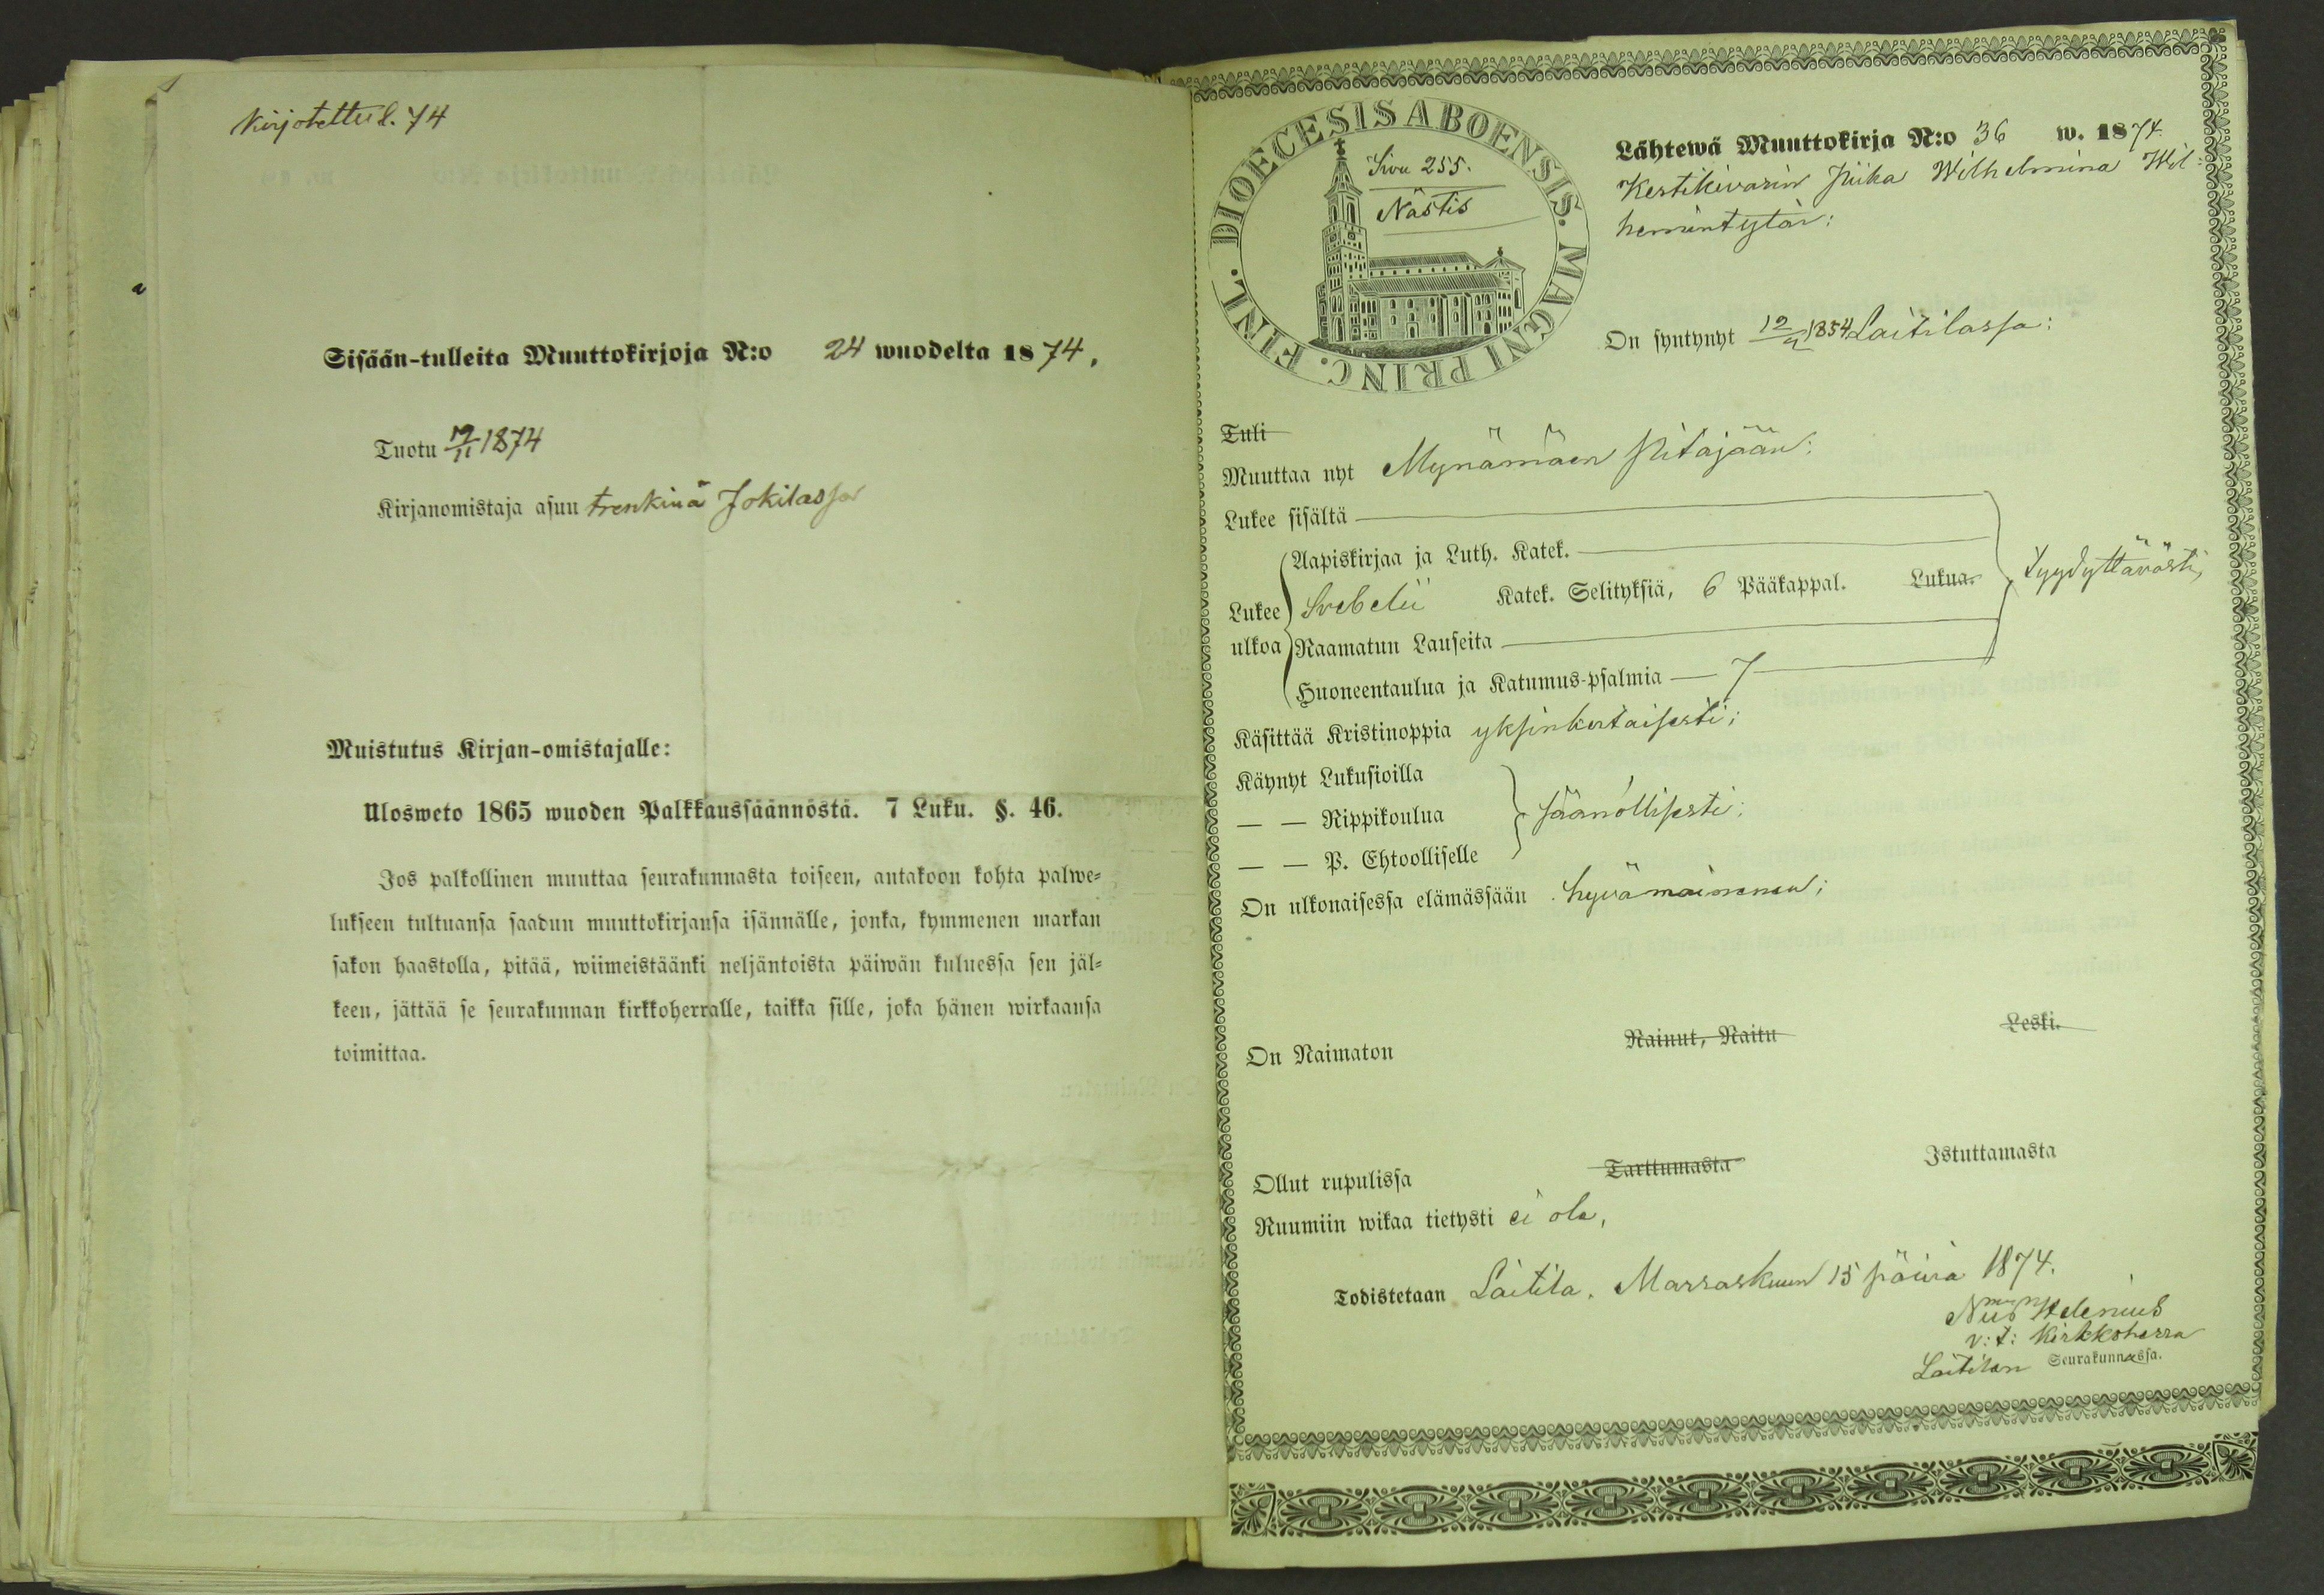 Kirjotettu S. 74
Sisään-tulleita Muuttokirjoja N:o 24 wuodelta 1874.
Tuotu 19/11 1874
Kirjanomistaja asuu trenkinä Jokilassa
Muistutus Kirjan-omistajalle:
Ulosweto 1865 wuoden Palkkaussäännöstä. 7 Luku. §. 46.
Jos palkollinen muuttaa seurakunnasta toiseen, antakoon kohta palwe-
lukseen tultuansa saadun muuttokirjansa isännälle, jonka, kymmenen markan
sakon haastolla, pitää, wiimeistäänki neljäntoista päiwän kuluessa sen jäl-
keen, jättää se seurakunnan kirkkoherralle, taikka sille, joka hänen wirkaansa
toimittaa.
FINL. DIOECESIS ABOENSIS. MAGNI PRINC.
Sivu 255.
Nästis
Lähtewä Muuttokirja N:o 36 w. 1874.
Kestikivarin Piika Wilhelmina Wil-
hemintytär:
On syntynyt 12/11 1854 Laitilassa:
Tuli
Muuttaa nyt Mynämäen Pitäjään:
Lukee sisältä
Lukee ulkoa
Aapiskirjaa ja Luth. Katek.
Svebelii Katek. Selityksiä, 6 Pääkappal. Lukua.
Raamatun Lauseita
Huoneentaulua ja Katumus-psalmia 7
tyydyttävästi;
Käsittää Kristinoppia yksinkertaisesti;
Käynyt Lukusioilla
— — Rippikoulua säänöllisesti:
— — P. Ehtoolliselle
On ulkonaisessa elämässään hyvämaineinen;
On Naimaton Nainut, Naitu Leski.
Ollut rupulissa Tarttumasta Istuttamasta
Ruumiin wikaa tietysti ei ole,
Todistetaan Laitila. Marraskuun 15 päivä 1874.
Helenius
v: t: Kirkkoherra
Laitilan Seurakunnassa.